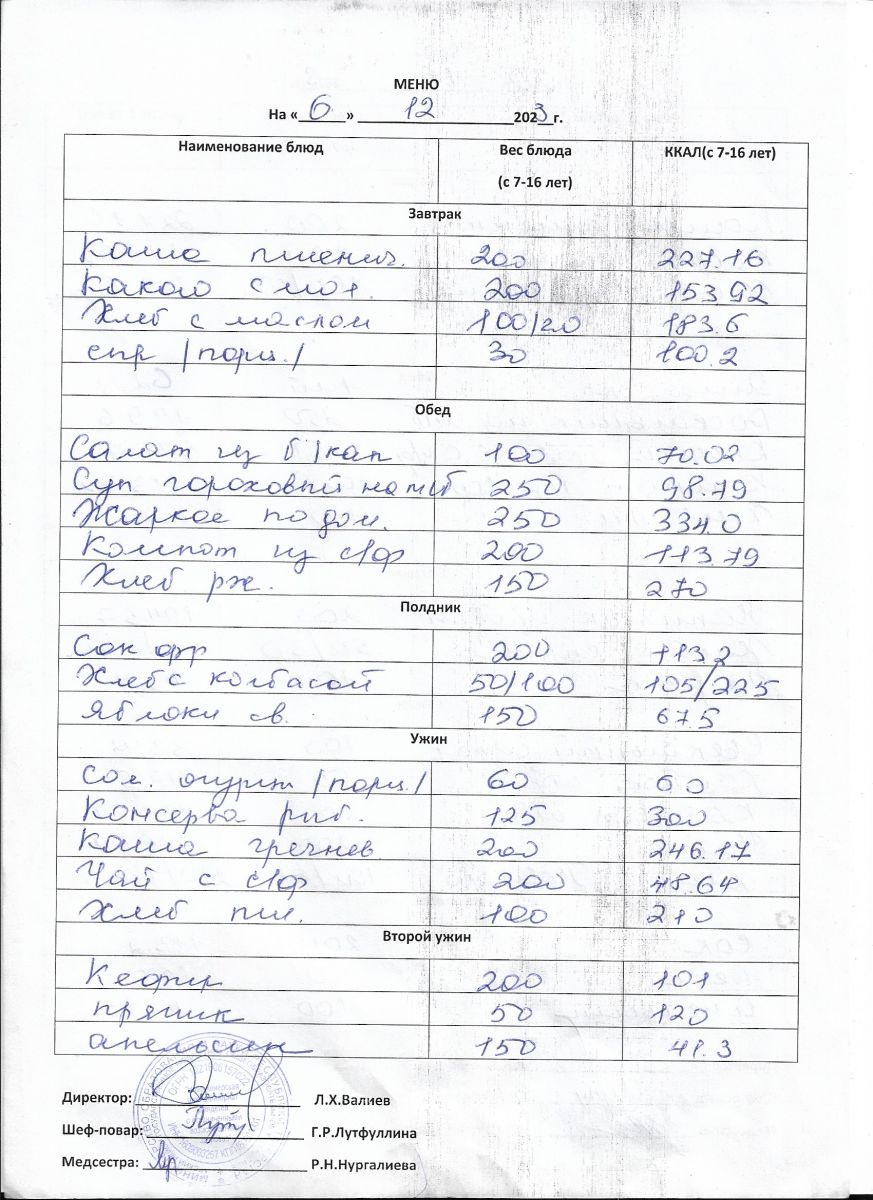 МЕНЮ
На « 6 » 12 2023 г.
Наименование блюд Вес блюда (с 7-16 лет) ККАЛ(с 7-16 лет)
Завтрак
Каша пшенич. 200 227.16
Какао с мол. 200 153.92
Хлеб с маслом 100/20 183.6
сыр /порц./ 30 100.2
Обед
Салат из б/кап 100 70.02
Суп гороховый на м/б 250 98.79
Жаркое по дом. 250 334.0
Компот из с/ф 200 113.79
Хлеб рж. 150 270
Полдник
Сок фр 200 113.2
Хлеб с колбасой 50/100 105/225
Яблоки св. 150 67.5
Ужин
Сол. огурцы /порц./ 60 60
Консерва рыб. 125 300
Каша гречнев. 200 246.17
Чай с с/ф 200 48.64
Хлеб пш. 100 210
Второй ужин
Кефир 200 101
пряник 50 120
апельсин 150 41.3
Директор: Л.Х.Валиев
Шеф-повар: Г.Р.Лутфуллина
Медсестра: Р.Н.Нургалиева